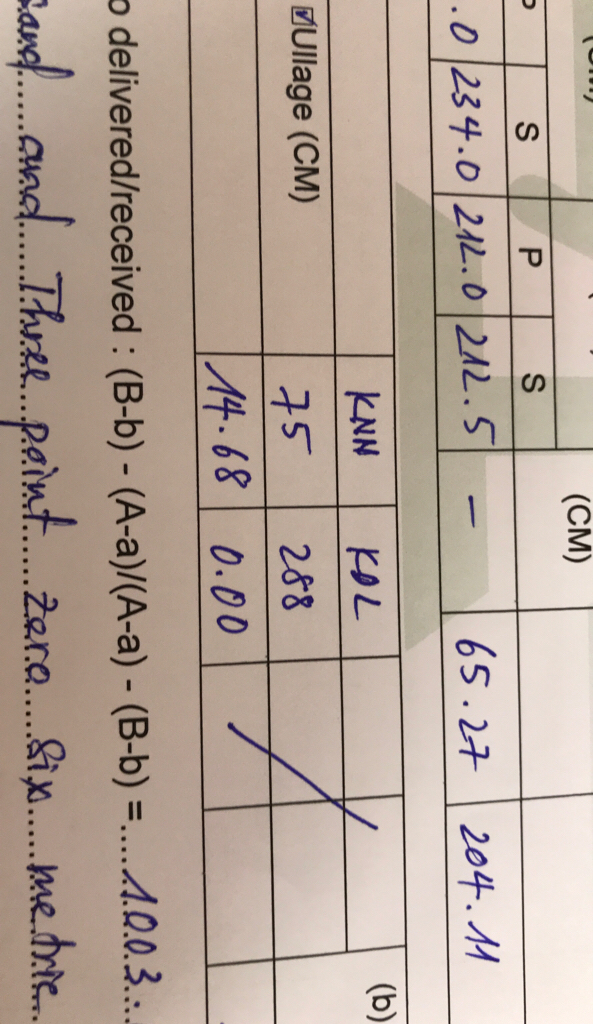 (CM)
P S P S
.0 234.0 212.0 212.5 – 65.27 204.11
KNN KDL (b)
☑Ullage (CM) 75 288
14.68 0.00
o delivered/received : (B-b) - (A-a)/(A-a) - (B-b) =....1.003...
sand......and....Three...point....zero....six....metric...